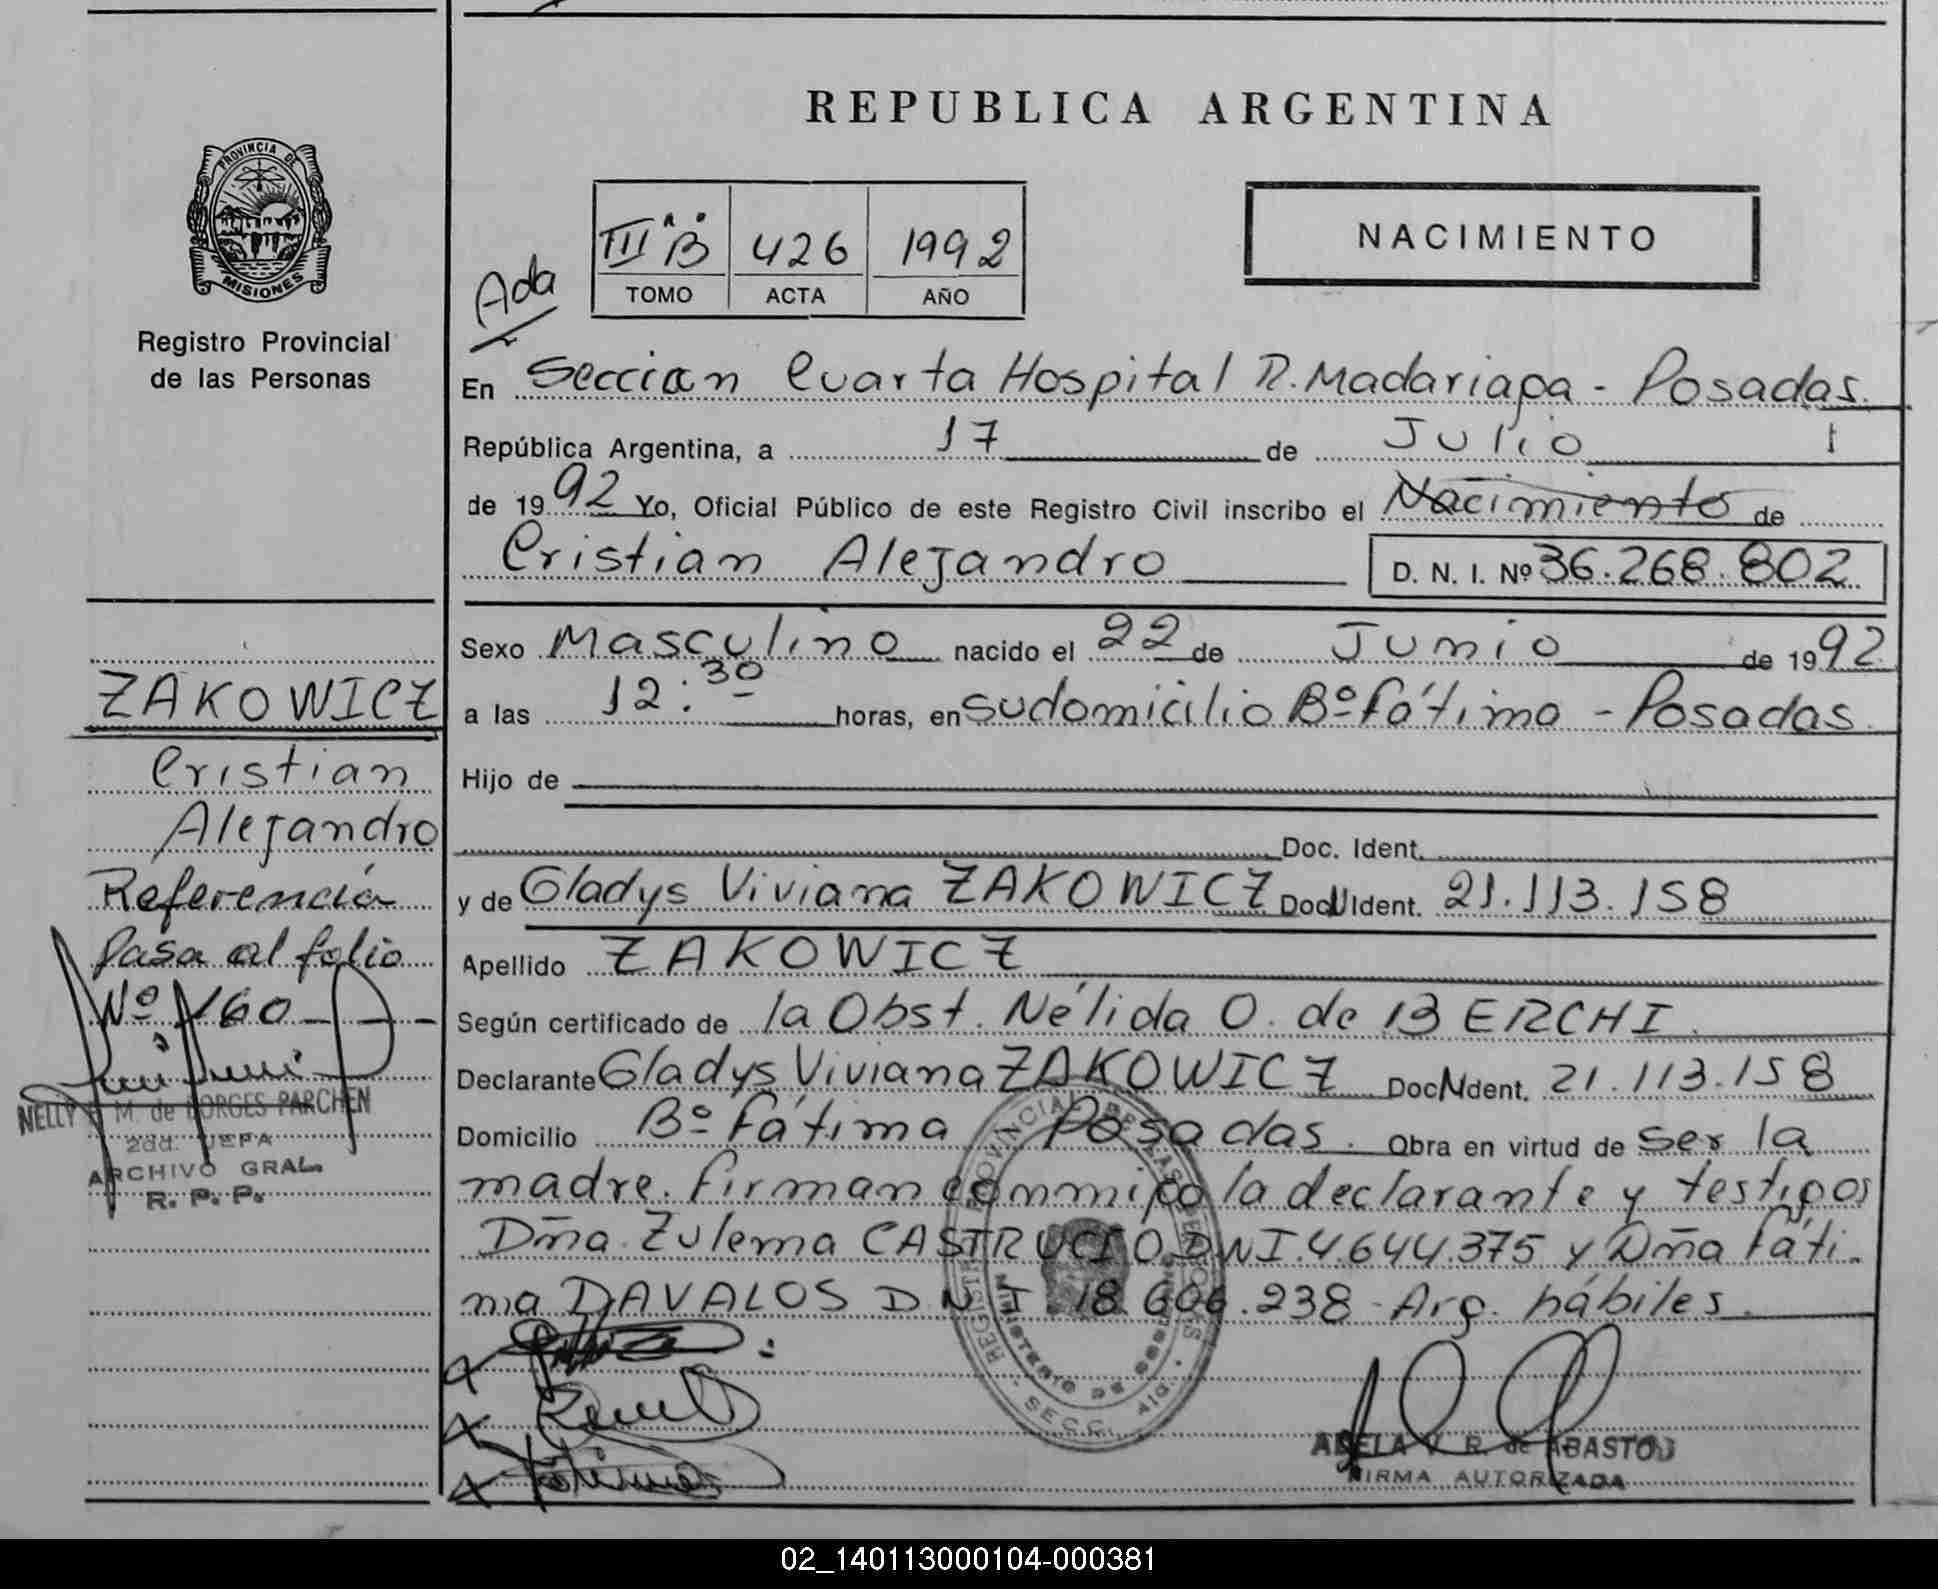 REPUBLICA ARGENTINA
PROVINCIA DE
MISIONES
Registro Provincial
de las Personas
III "B" 426 1992
TOMO ACTA AÑO
NACIMIENTO
Ada
En Seccion Cuarta Hospital R. Madariaga - Posadas.
República Argentina, a 17 de Julio
de 1992 Yo, Oficial Público de este Registro Civil inscribo el Nacimiento de
Cristian Alejandro D. N. I. Nº 36.268.802
Sexo Masculino nacido el 22 de Junio de 1992
a las 12:30 horas, en su domicilio Bº Fátima - Posadas.
Hijo de
Doc. Ident.
y de Gladys Viviana ZAKOWICZ Doc. Ident. 21.113.158
Apellido ZAKOWICZ
Según certificado de la Obst. Nélida O. de BERCHI.
Declarante Gladys Viviana ZAKOWICZ Doc. Ident. 21.113.158
Domicilio Bº Fátima - Posadas. Obra en virtud de ser la
madre. Firman conmigo la declarante y testigos
Dña. Zulema CASTRUCIO DNI 4.644.375 y Dña Fáti-
ma DAVALOS D N I 18.606.238 - Arg. hábiles.
ZAKOWICZ
Cristian
Alejandro
Referencia
Pasa al folio
Nº 160
NELLY M. de BORGES PARCHEN
2da. JEFA
ARCHIVO GRAL.
R. P. P.
REGISTRO PROVINCIAL DE LAS PERSONAS
MINISTERIO DE GOBIERNO
SECC. 4ta.
ADELA V. R. de ABASTOS
FIRMA AUTORIZADA
02_140113000104-000381